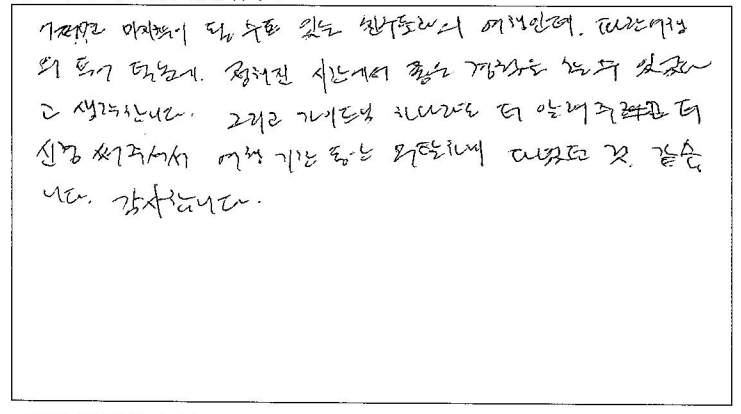 마지막이 될 수도 있는 친구들과의 여행인데. 파란여행
의 특가 덕분에. 정해진 시간에서 좋은 경험을 할 수 있었다
고 생각합니다. 그리고 가이드님 하나라도 더 알려주 더
신경 써주셔서 여행 기간 동안 무탈하게 다녔던 것 같습
니다. 감사합니다.